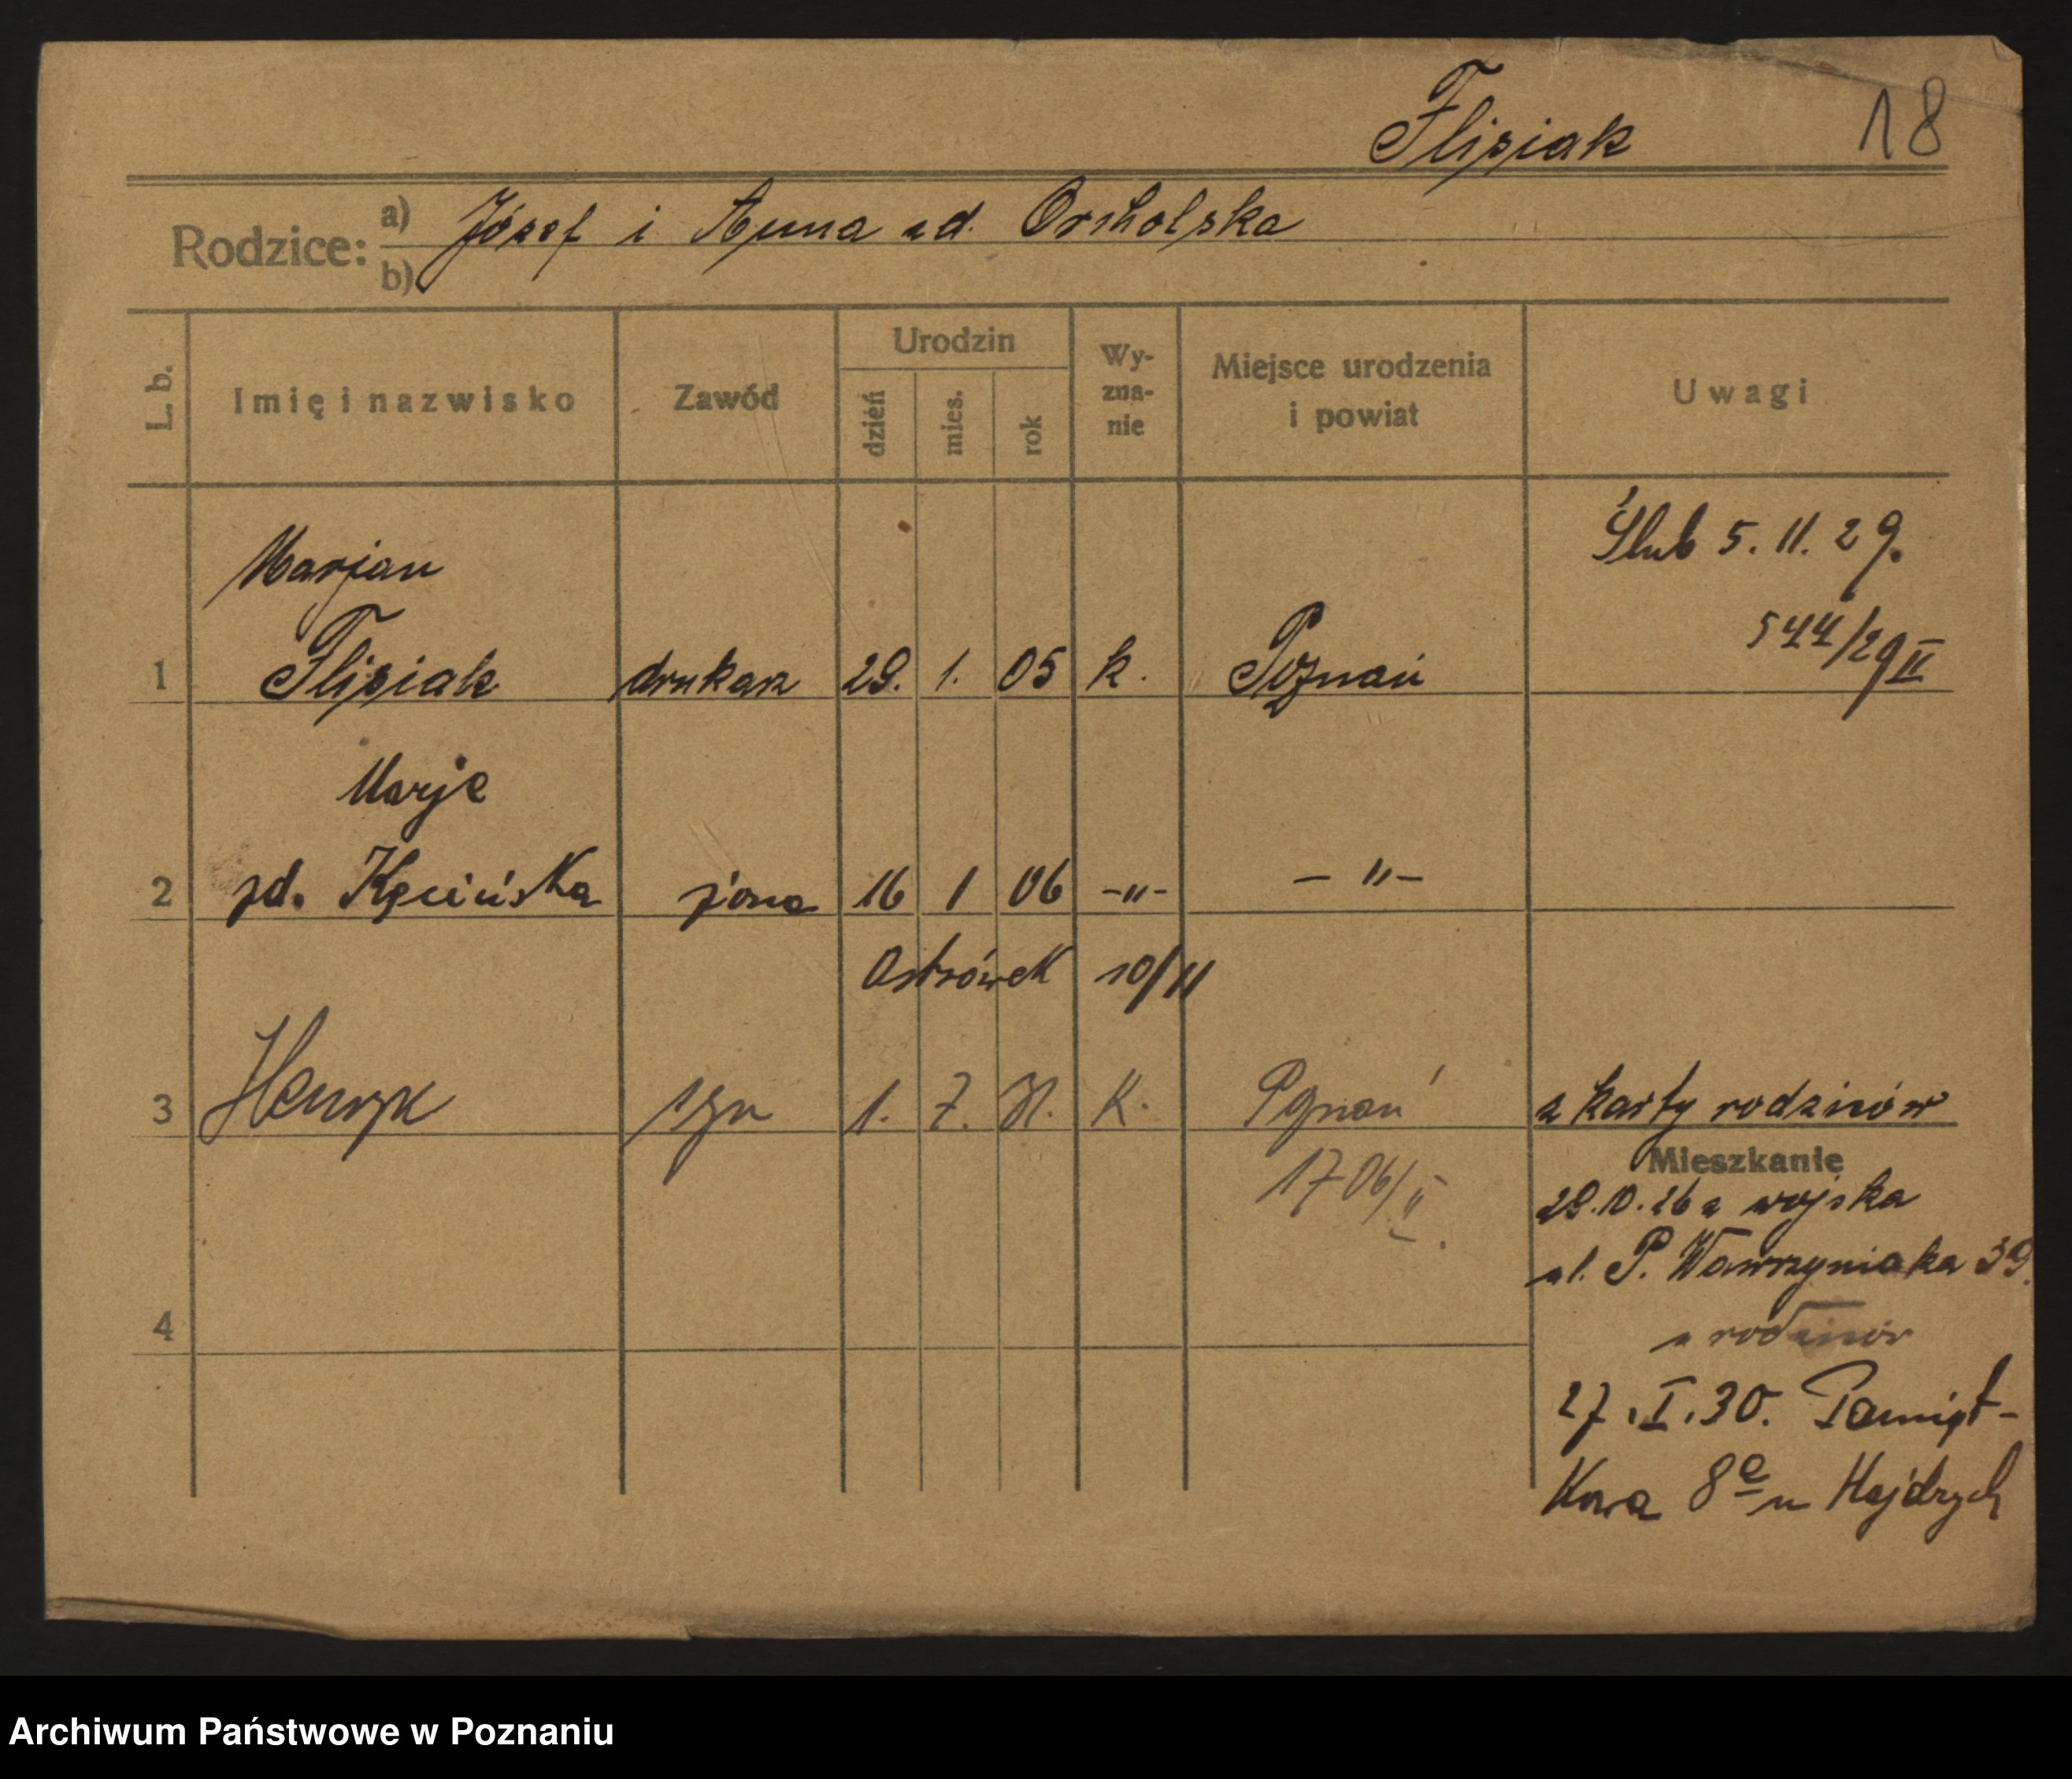 Flisiak 18
Rodzice: a) Józef i Anna zd. Orcholska
b)
L. b. Imię i nazwisko Zawód Urodzin dzień mies. rok Wy-zna-nie Miejsce urodzenia i powiat Uwagi
Marjan Ślub 5. 11. 29.
544/29 II
1 Flisiak drukarz 29. 1. 05 k. Poznań
Marja
2 zd. Kęcińska żona 16 1 06 -„- -„-
Ostrówek 10/11
3 Henryk syn 1. 7. 31. K. Poznań z karty rodziców
1706/II.
Mieszkanie
29.10.26 z wojska
ul. P. Wawrzyniaka 39.
4 u rodziców
27.I.30. Pamiąt-
kowa 8a u Hajdrych
Archiwum Państwowe w Poznaniu